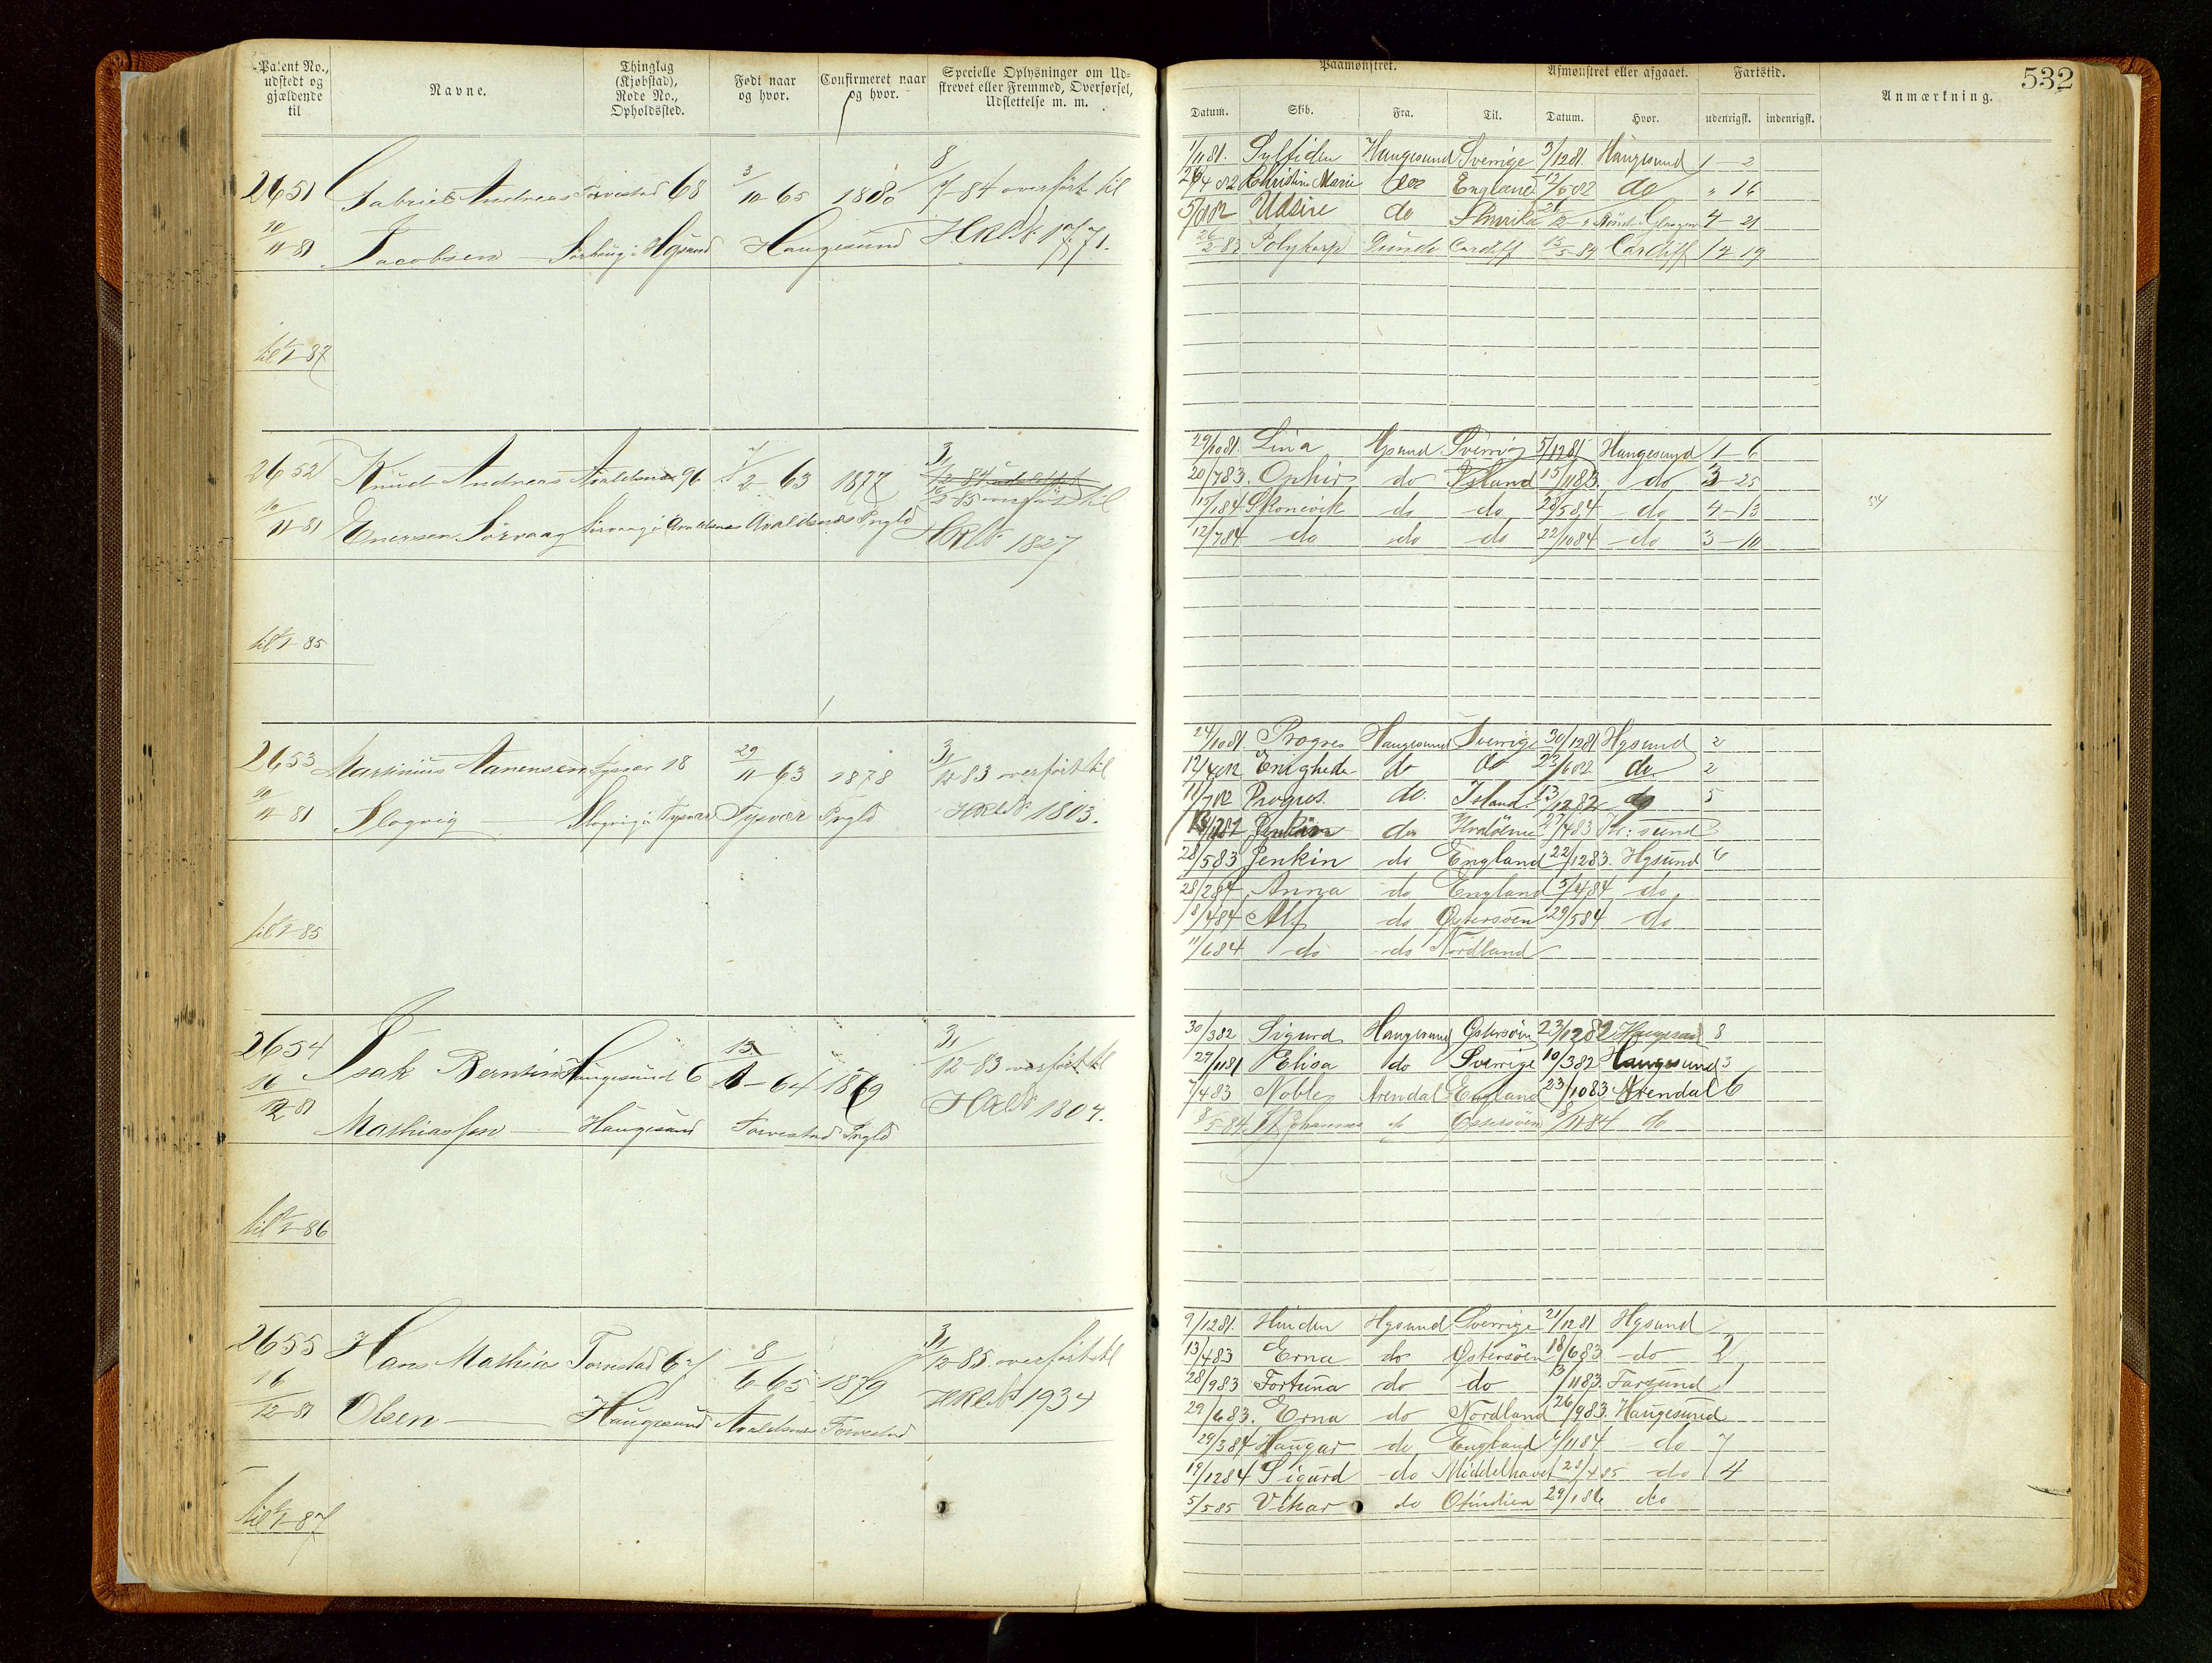 532
Patent No., udstedt og gjældende til
Navne.
Thinglag (Kjøbstad), Rode No., Opholdssted.
Født naar og hvor.
Confirmeret naar og hvor.
Specielle Oplysninger om Udskrevet eller Fremmed, Overførsel, Udslettelse m. m.
Paamønstret.
Afmønstret eller afgaaet.
Fartstid.
Anmærkning.
Datum. Skib. Fra. Til. Datum. Hvor. udenrigsk. indenrigsk.
2651 Gabriel Andreas Torvestad 68 3/10-65 1880 8/7-84 overført til
10/11-81 Jacobsen Haugesund HRLN: 1771.
til 1/1-87
1/11 81. Sylfiden Haugesund Sverrige 3/12 81. Haugesund 1-2
Christine Marie do England do " 16
Udsire do Amrika 4-21
26/2-83 Polykarp Cardiff 15/5-84 Cardiff 14-19
2652 Knud Andreas Avaldsnæs 96 2-63 1877 3/12-84 udslettet
overført til
10/11-81 Enersen Sørvaag Sørvaag i Avaldsnes Avaldsnæs Prgld HRLN: 1827
til 1/1-85
29/10 81. Lina Hgsund Sverrig 5/12 81 Haugesund 1-6
20/7 83. Ophir do Island 15/11 83. do 3-25
15/1 84 Skonevik do do 28/5 84 do 4-13
54
12/7 84 do do do 22/10 84 do 3-10
2653 Martinius Aanensen Tysvær 18 29/11-63 1878 31/12-83 overført til
10/11-81 Slogvig Slogvig i Tysvær Tysvær Prgld HRLN: 1803.
til 1/1-85
24/10 81. Progres Haugesund Sverrige 30/12 81 Hgsund 2
Enighede do do 23/6 82 do 2
11/7 82 Progres. do. Island 13/12 82 do 5
do 27/4 83 Kr: sund
28/5 83 Jenkin do England 22/12 83. Hgsund 6
28/2 84 Anna do England 5/4 84 do
18/4 84 Alf do Østersøen 29/5 84 do
11/6 84 do do Nordland
2654 Isak Berntin Haugesund 6 13/1-64 1879 31/12-83 overført til
16/12-81 Mathiassen Haugesund Torvestad Prgld HRLN: 1804.
til 1/1-86
30/3 82 Sigurd Haugesund Østersøen 23/12 82 Haugesund 8
29/11 81 Elisa do Sverrige 10/3 82 Haugesund 3
7/4 83 Noble Arendal England 23/10 83 Arendal 6
8/5-84 St Johannes do Østersøen 8/11 84 do
2655 Hans Mathia Torvestad 67 8/6-65 1879 31/12-85 overført til
16/12-81 Olsen Haugesund Avaldsnes Torvestad HRLN: 1934
til 1/1-87
9/12 81. Hinden Hgsund Sverrige 21/12 81 Hgsund
13/4 83 Erna do Østersøen 18/6 83 do 2
28/9 83 Fortuna do do 3/11 83. Farsund 1
29/6 83. Erna do Nordland 26/9 83. Haugesund
29/3 84 Haugar do England /11 84 do 7
19/12 84 Sigurd do Middelhavet 28/4 85 do 4
5/5 85 Vikar do Ostindien 29/1 86 do